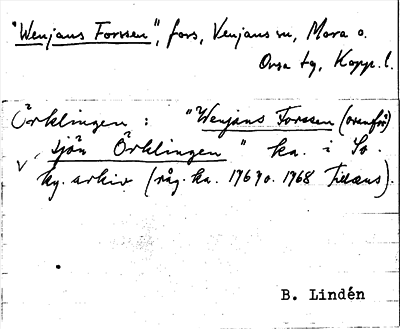 "Wenjans Forssen", fors, Venjans sn, Mora o.
Orsa tg, Kopp. l.
Örklingen : "Wenjans Forssen (ovanför)
sjön Örklingen" ka. i So.
kg. arkiv (råg. ka. 1767 o. 1768 Tillæus).
B. Lindén